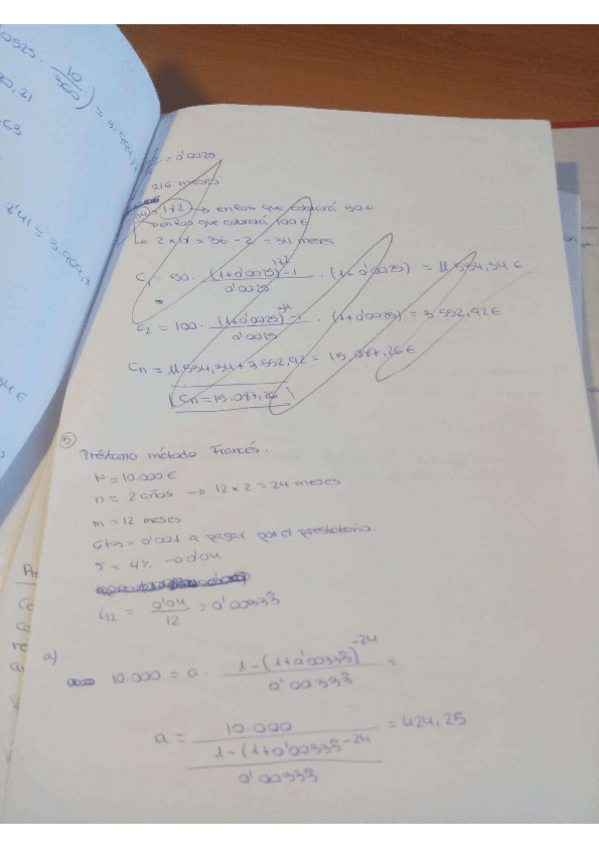 0525. 10/360) = 3.
0,21
63
7'41 = 3.
34€
= 0'0025
216 meses
34 = 172 → en los que cobrará 50€
en los que cobrará 100€
↳ 2 x 17 = 36 - 2 = 34 meses
C1 = 50. (1+0'0025)^172 - 1 / 0'0025 . (1+0'0025) = 11.534,34€
C2 = 100. (1+0'0025)^34 - 1 / 0'0025 . (1+0'0025) = 3.552,92€
Cn = 11.534,34 + 3.552,92 = 15.087,26€
Cn = 15.087,26
5
Préstamo método Francés.
N = 10.000€
n = 2 años → 12 x 2 = 24 meses
m = 12 meses
Gtos = 0'001 a pagar por el prestatario.
J = 4% → 0'04
i12 = 0'04 / 12 = 0'00333
a)
10.000 = a. 1-(1+0'00333)^-24 / 0'00333 =
a = 10.000 / 1-(1+0'00333^-24 / 0'00333 = 424,25